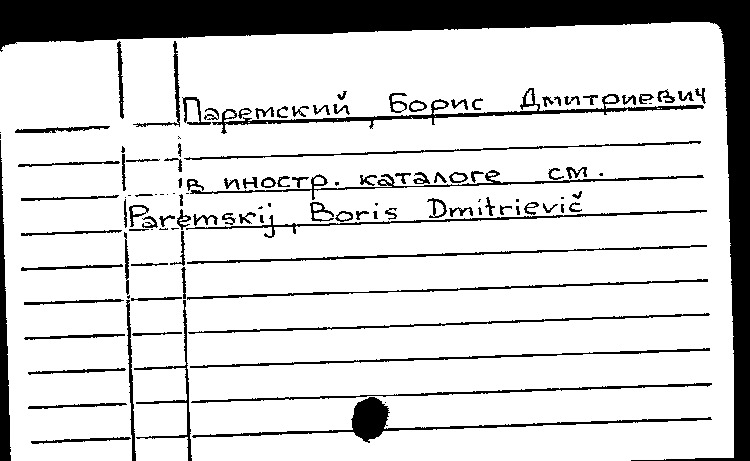 Паремский, Борис Дмитриевич
в иностр. каталоге см.
Paremskij, Boris Dmitrievič